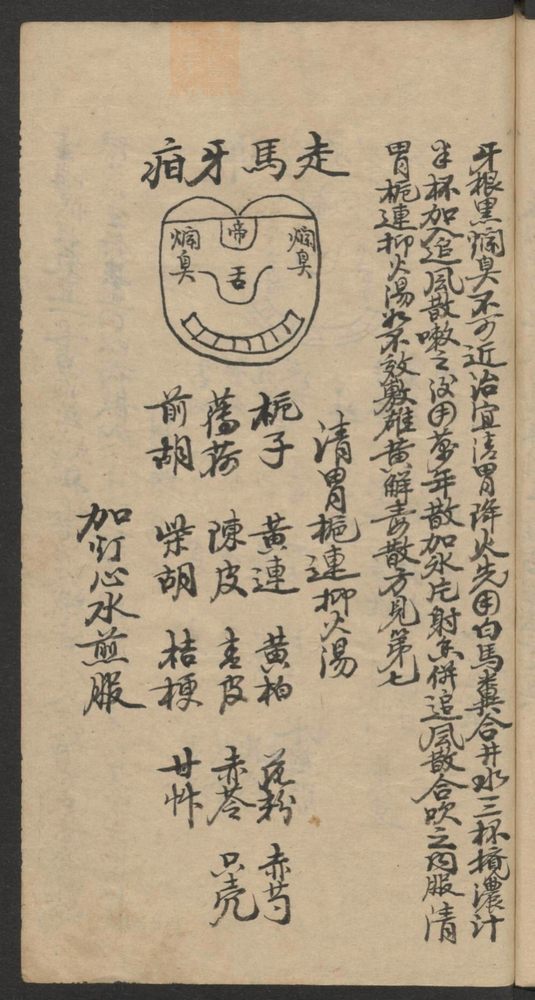 走馬牙疳
牙根黑爛臭不可近治宜清胃降火先用白馬糞合井水三杯擠濃汁
半杯加入追風散嗽之後用萬年散加氷片射香併追風散合吹之內服清
胃梔連抑火湯如不效敷雄黃解毒散方見第七
爛臭
帝
舌
爛臭
清胃梔連抑火湯
梔子 黃連 黃柏 花粉 赤芍
薄荷 陳皮 青皮 赤苓 只壳
前胡 柴胡 桔梗 甘艸
加灯心水煎服